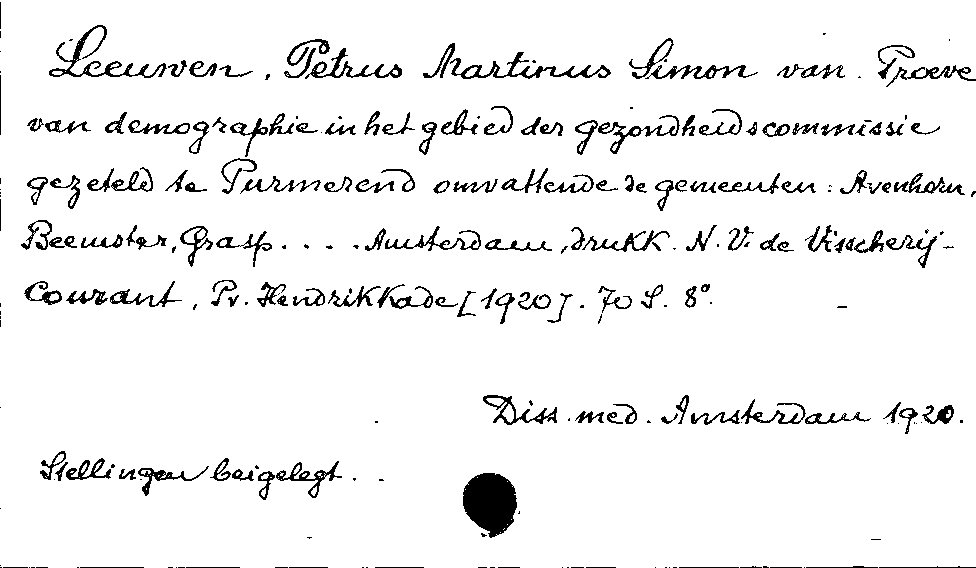 Leeuwen, Petrus Martinus Simon van. Proeve
van demographie in het gebied der gezondheidscommissie
gezeteld te Purmerend omvattende de gemeenten: Avenhorn,
Beemster, Grasp. . . . Amsterdam, drukk. N. V. de Visscherij-
Courant, Pr. Hendrikkade [1920]. 70 S. 8°.
Diss. med. Amsterdam 1920.
Stellingen beigelegt. .